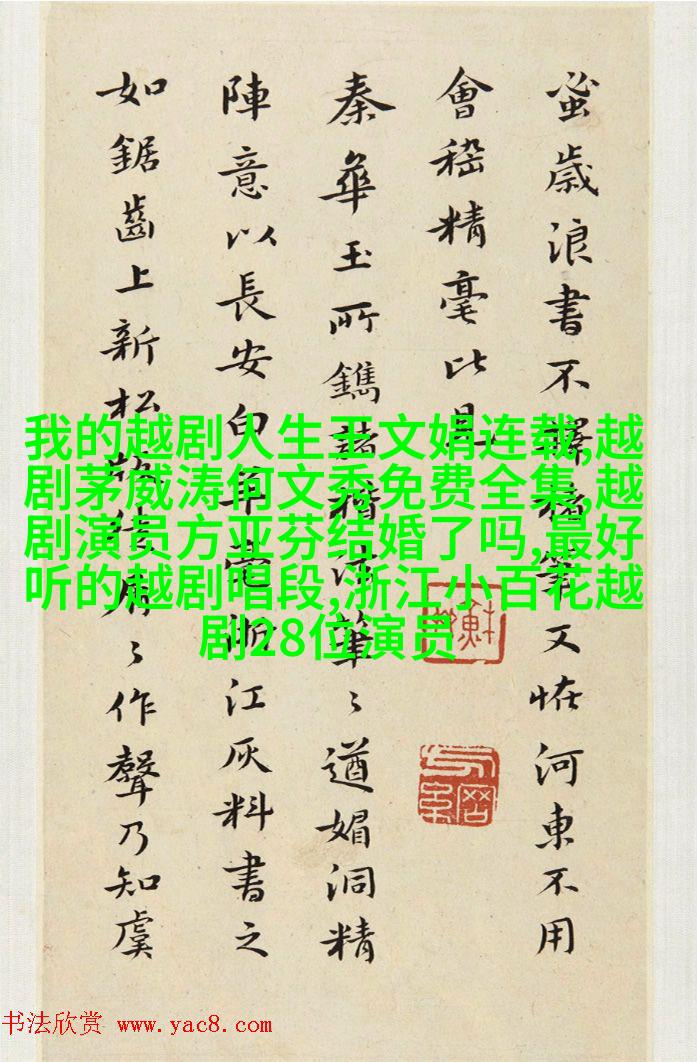 蚤歲浪書不擇筆又恠河東不用
會稽精毫比見
秦華玉所鐫諸楷法筆〻遒媚洞精
陣意以長安白羊毫浙江灰料書之
如鋸齒上新松屑〻作聲乃知虞
我的越剧人生王文娟连载,越
剧茅威涛何文秀免费全集,越
剧演员方亚芬结婚了吗,最好
听的越剧唱段,浙江小百花越
剧28位演员
书法欣赏 www.yac8.com